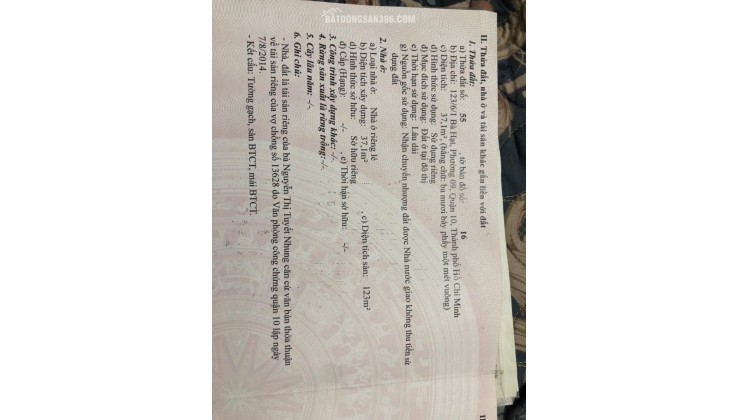 BATDONGSAN366.COM
II. Thửa đất, nhà ở và tài sản khác gắn liền với đất
1. Thửa đất:
a) Thửa đất số: 55 , tờ bản đồ số: 16
b) Địa chỉ: 123/6/1 Bà Hạt, Phường 09, Quận 10, Thành phố Hồ Chí Minh
c) Diện tích: 37,1m², (bằng chữ: ba mươi bảy phẩy một mét vuông)
d) Hình thức sử dụng: Sử dụng riêng
đ) Mục đích sử dụng: Đất ở tại đô thị
e) Thời hạn sử dụng: Lâu dài
g) Nguồn gốc sử dụng: Nhận chuyển nhượng đất được Nhà nước giao không thu tiền sử
dụng đất
2. Nhà ở:
a) Loại nhà ở: Nhà ở riêng lẻ
b) Diện tích xây dựng: 37,1m² , c) Diện tích sàn: 123m²
d) Hình thức sở hữu: Sở hữu riêng
đ) Cấp (Hạng): -/- , e) Thời hạn sở hữu: -/-
3. Công trình xây dựng khác: -/-
4. Rừng sản xuất là rừng trồng: -/-
5. Cây lâu năm: -/-
6. Ghi chú:
- Nhà, đất là tài sản riêng của bà Nguyễn Thị Tuyết Nhung căn cứ văn bản thỏa thuận
về tài sản riêng của vợ chồng số 13628 do Văn phòng công chứng quận 10 lập ngày
7/8/2014.
- Kết cấu: Tường gạch, sàn BTCT, mái BTCT.